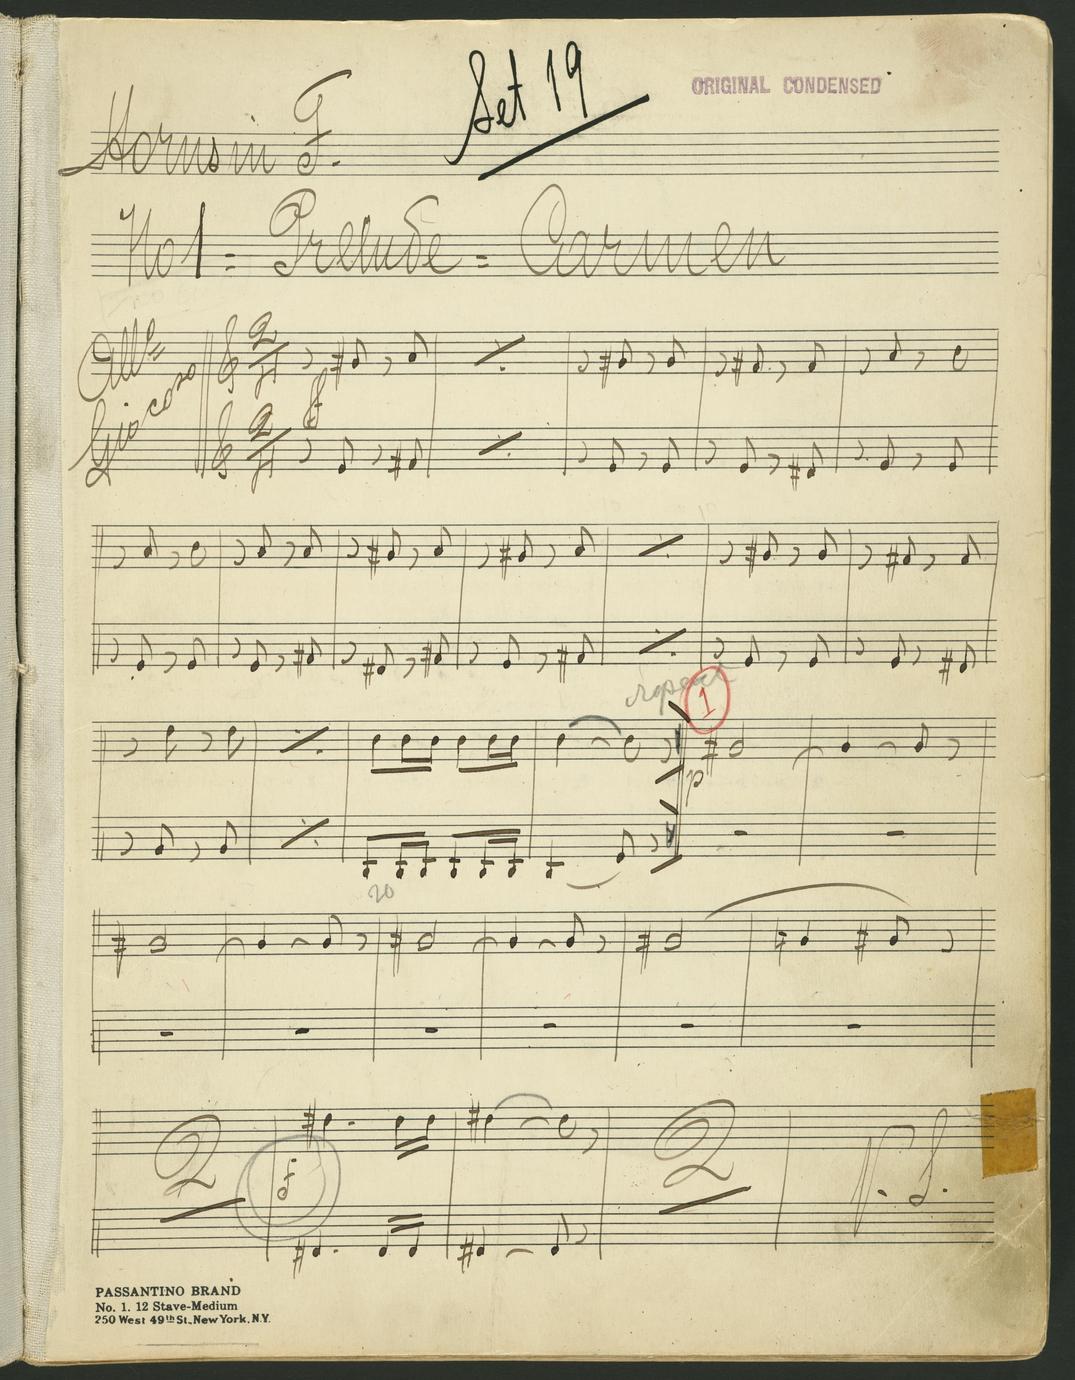 Set 19
ORIGINAL CONDENSED
Horns in F.
No 1 = Prelude = Carmen
Allo
Giocoso
2
4
f
2
4
repeat
1
p
20
2
f
2
V. S.
PASSANTINO BRAND
No. 1. 12 Stave-Medium
250 West 49th St., New York, N.Y.